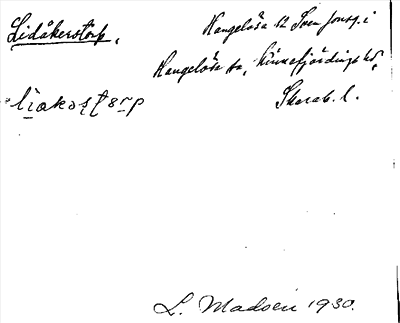 Lidåkerstorp.
Hangelösa 12 Sven Jonsg. i
Hangelösa sn, Kinnefjärdings hd,
Skarab. l.
L. Madsén 1930.